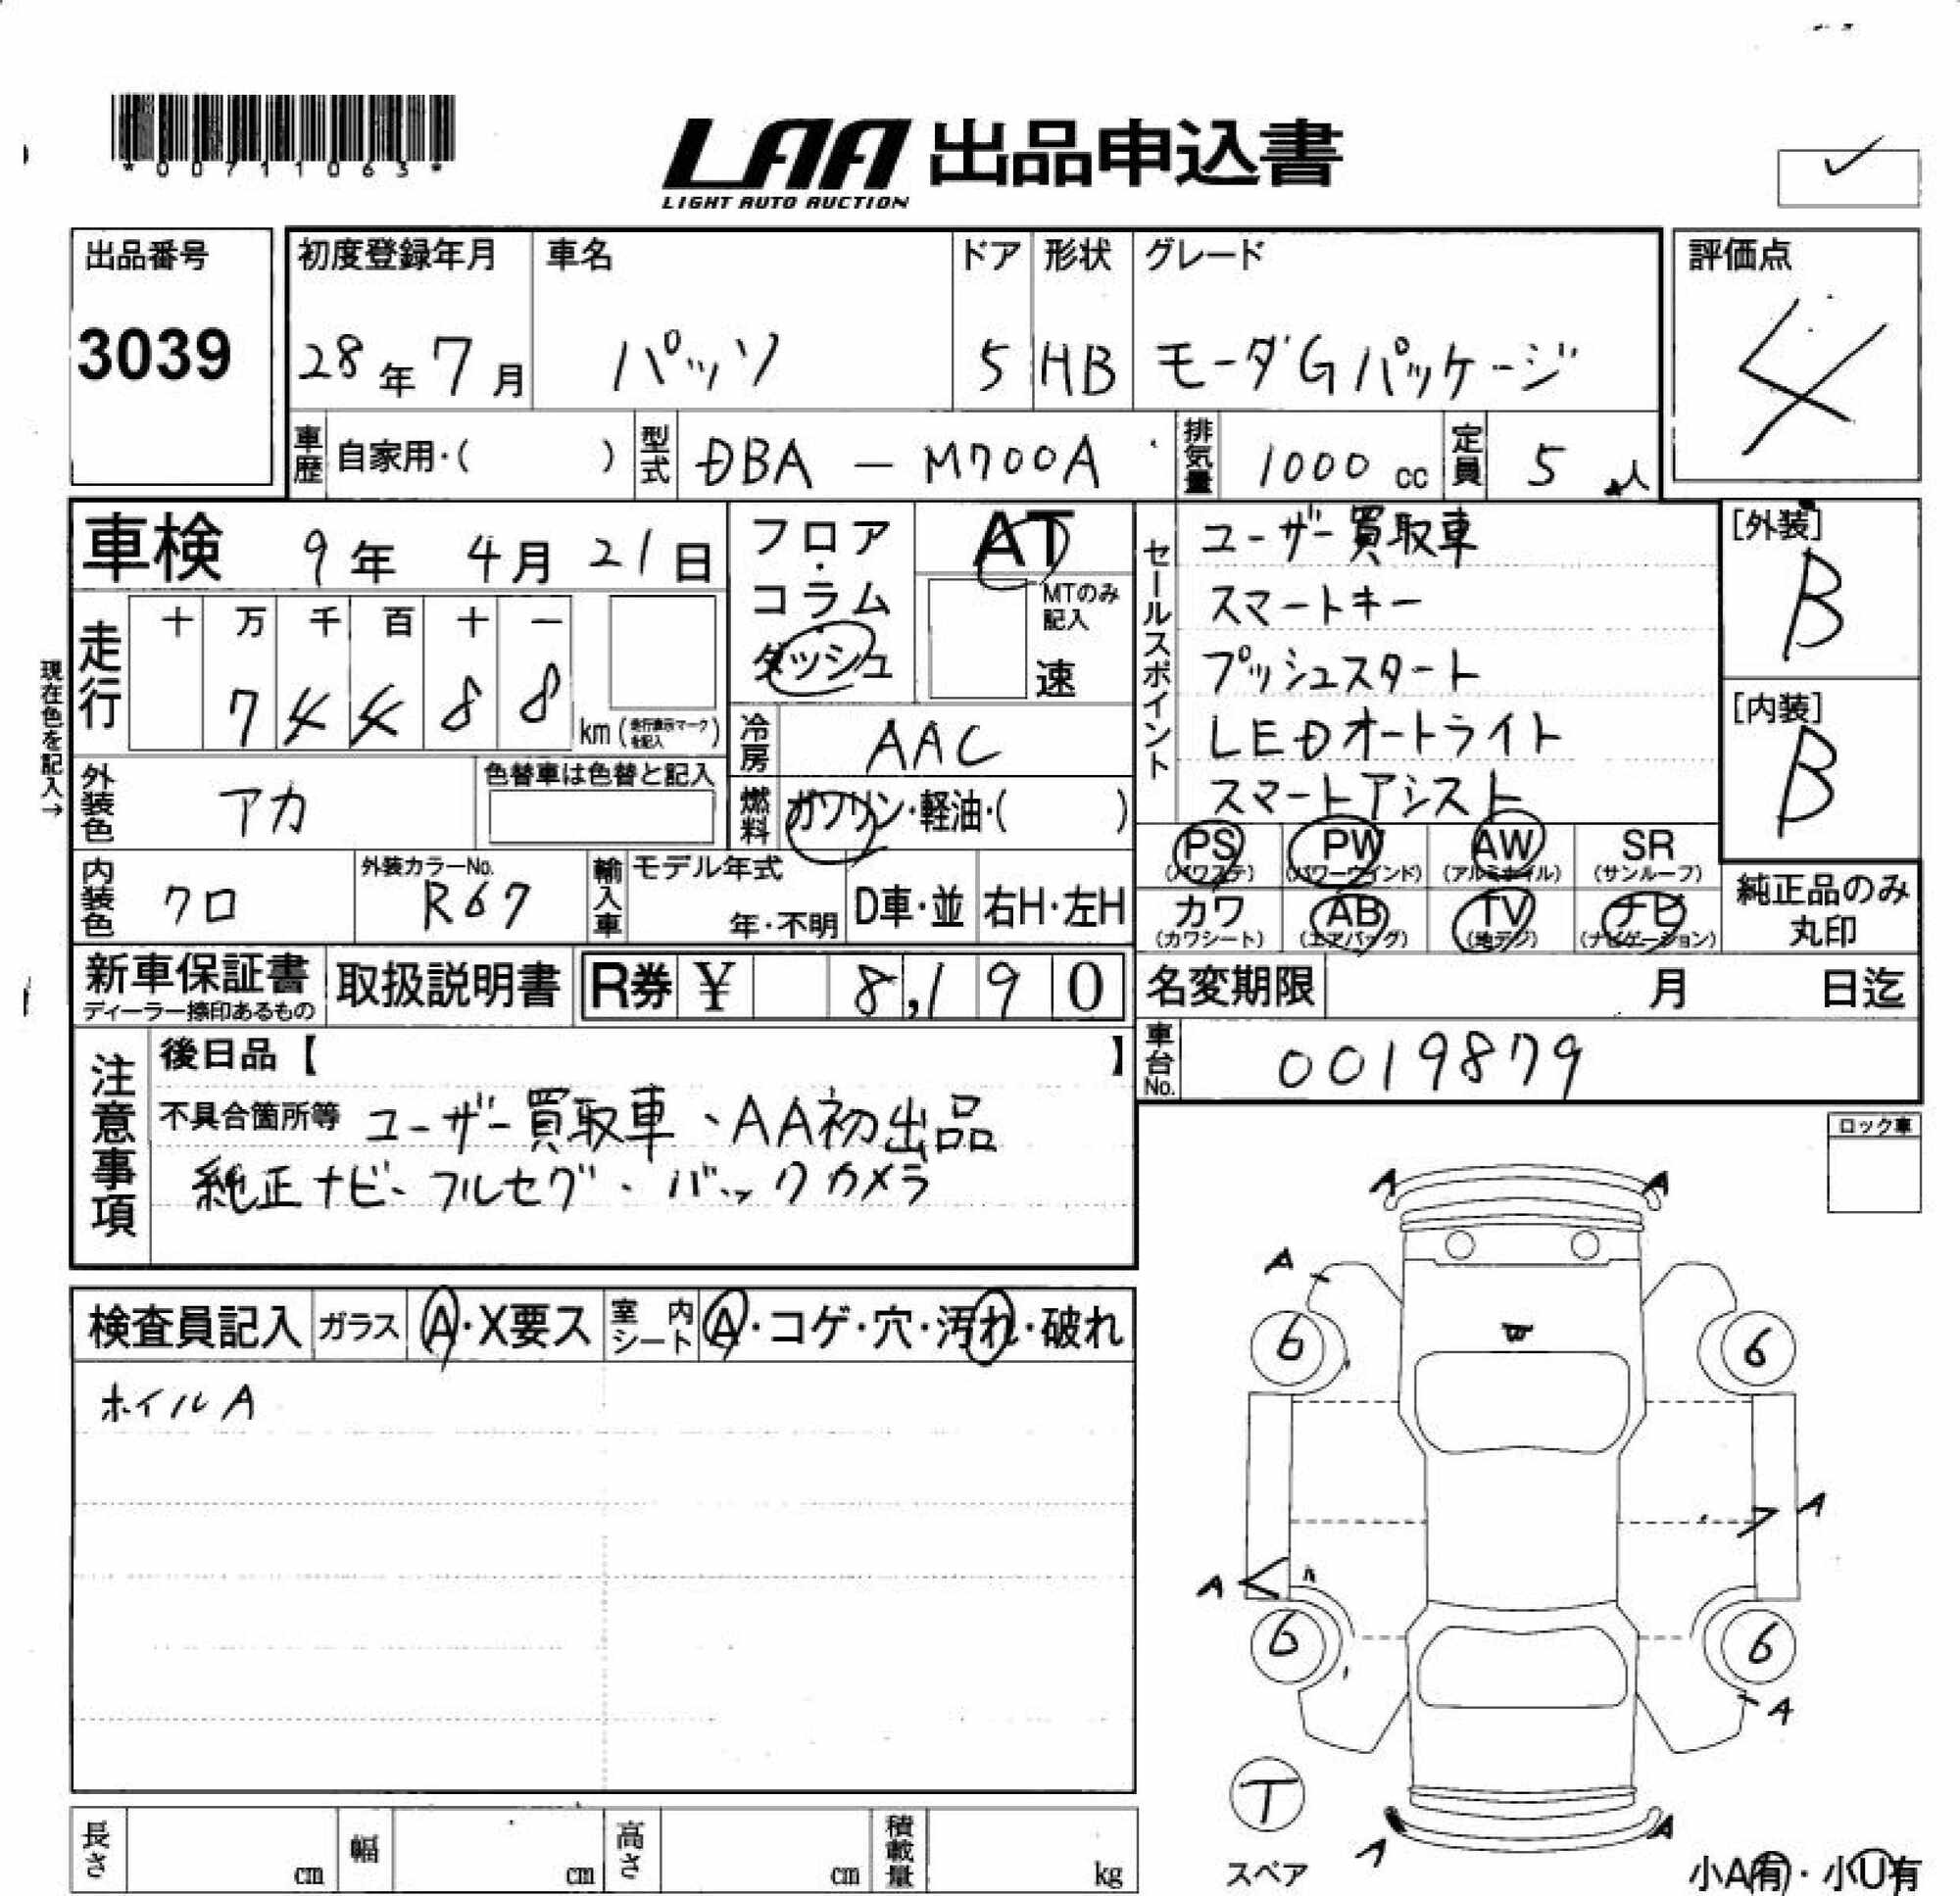 *00711063*
LAA 出品申込書
LIGHT AUTO AUCTION
出品番号
3039
初度登録年月
28年7月
車名
パッソ
ドア
5
形状
HB
グレード
モーダGパッケージ
評価点
4
車歴 自家用・( )
型式 DBA - M700A
排気量 1000 cc
定員 5人
車検 9年 4月 21日
走行 十 万 千 百 十 一
7 4 4 8 8 km
現在色を記入→
フロア・コラム・ダッシュ
AT
MTのみ記入
速
冷房 AAC
燃料 ガソリン・軽油・( )
外装色 アカ
色替車は色替と記入
内装色 クロ
外装カラーNo. R67
輸入車 モデル年式
年・不明
D車・並
右H・左H
セールスポイント
ユーザー買取車
スマートキー
プッシュスタート
LEDオートライト
スマートアシスト
[外装]
B
[内装]
B
PS (パワステ)
PW (パワーウインド)
AW (アルミホイル)
SR (サンルーフ)
カワ (カワシート)
AB (エアバッグ)
TV (地デジ)
ナビ (ナビゲーション)
純正品のみ丸印
新車保証書
ディーラー捺印あるもの
取扱説明書
R券 ¥ 8,190
名変期限 月 日迄
車台No. 0019879
注意事項
後日品【 】
不具合箇所等 ユーザー買取車、AA初出品
純正ナビ、フルセグ、バックカメラ
ロック車
検査員記入
ガラス A・X要ス
室内シート A・コゲ・穴・汚れ・破れ
ホイルA
A
A
A
6
6
A
A
6
6
A
T
スペア
A
A
小A有・小U有
長さ cm
幅 cm
高さ cm
積載量 kg